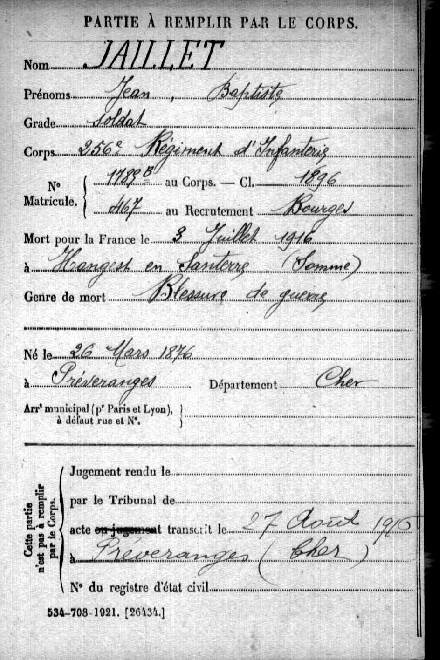 PARTIE À REMPLIR PAR LE CORPS.
Nom JAILLET
Prénoms Jean, Baptiste
Grade soldat
Corps 256e Régiment d'Infanterie
No Matricule. { 1789 B au Corps. — Cl. 1896
467 au Recrutement Bourges
Mort pour la France le 3 Juillet 1916
à Hangest en Santerre (Somme)
Genre de mort Blessure de guerre
Né le 26 Mars 1876
à Préveranges Département Cher
Arrt municipal (pr Paris et Lyon), à défaut rue et No. }
Cette partie n'est pas à remplir par le Corps.
Jugement rendu le
par le Tribunal de
acte ou jugement transcrit le 27 Août 1916
à Préveranges (Cher)
No du registre d'état civil
534-708-1921. [26434.]